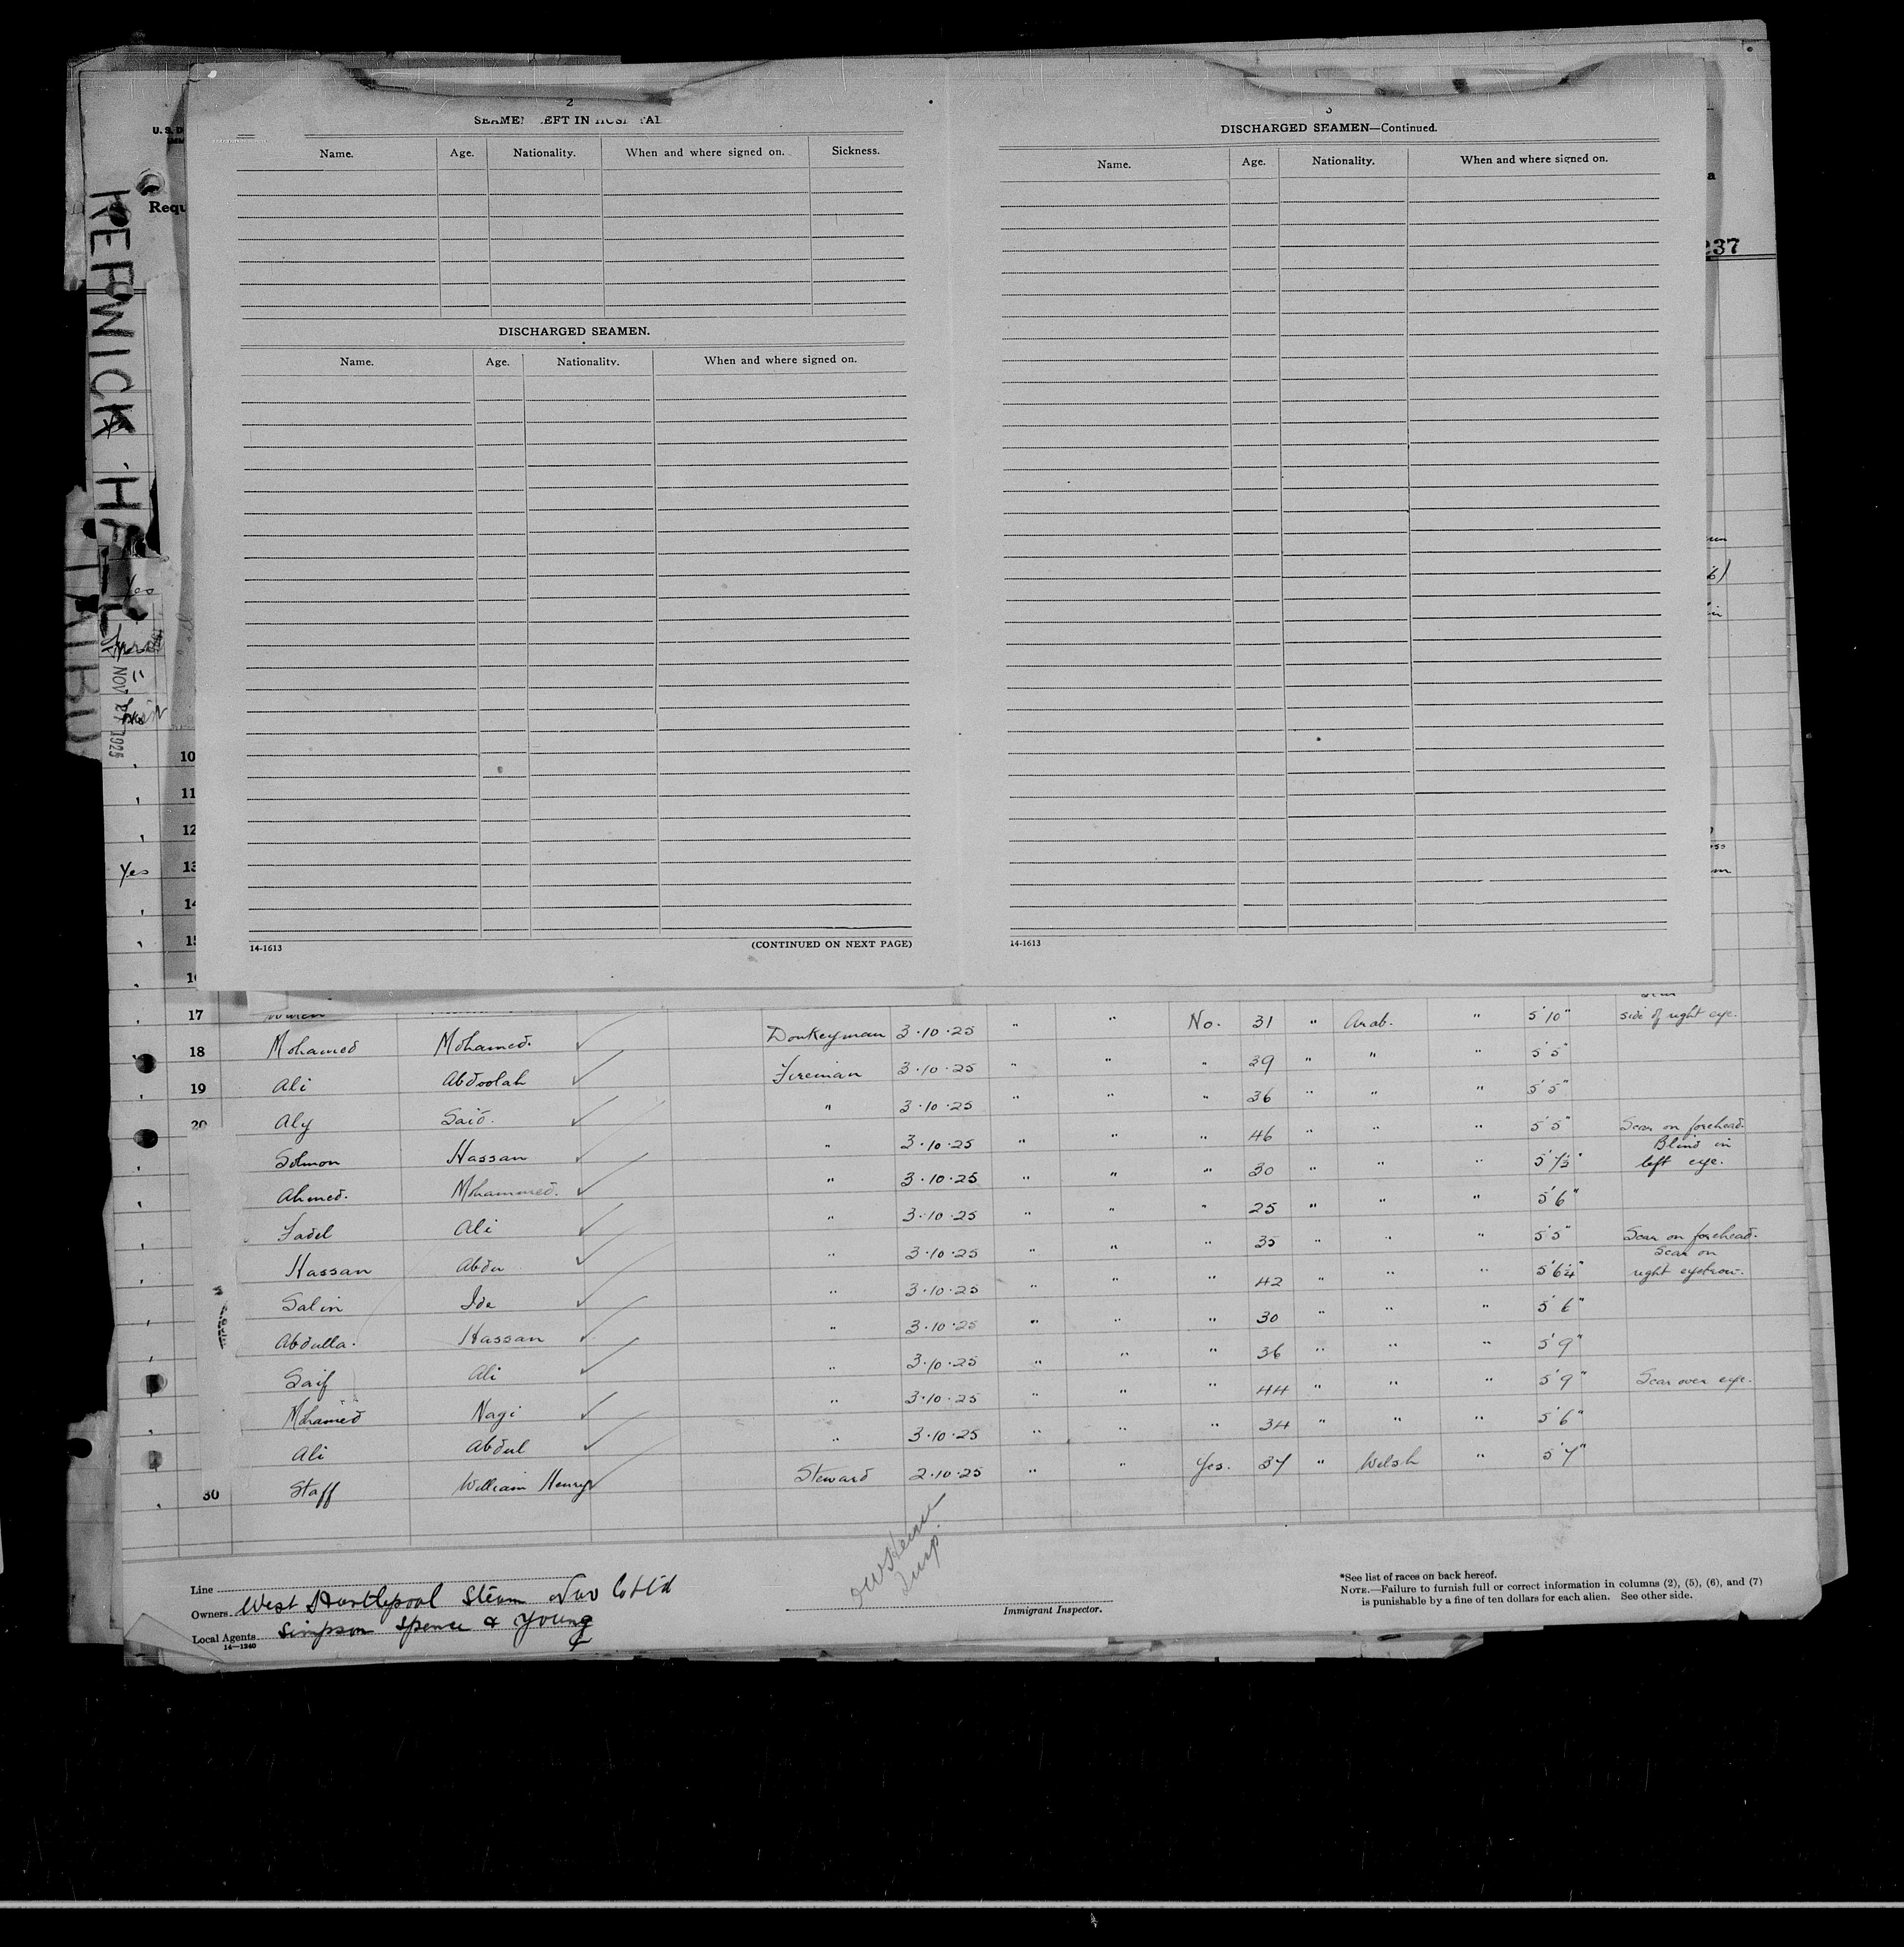 2
SEAMEN LEFT IN HOSPITAL
Name. Age. Nationality. When and where signed on. Sickness.
DISCHARGED SEAMEN.
Name. Age. Nationality. When and where signed on.
14-1613 (CONTINUED ON NEXT PAGE)
3
DISCHARGED SEAMEN—Continued.
Name. Age. Nationality. When and where signed on.
14-1613
U. S. D
Requ
237
Yes
NOV 27 1925
10
11
12
Yes 13
14
15
16
17 side of right eye.
18 Mohamed Mohamed. Donkeyman 3.10.25 " " No. 31 " Arab. " 5'10"
19 Ali Abdoolah Fireman 3.10.25 " " " 39 " " " 5'5"
20 Aly Said. " 3.10.25 " " " 36 " " " 5'5"
Solmon Hassan " 3.10.25 " " " 46 " " " 5'5" Scar on forehead.
Ahmed. Mohammed. " 3.10.25 " " " 30 " " " Blind in left eye.
Fadel Ali " 3.10.25 " " " 25 " " " 5'6"
Hassan Abdu " 3.10.25 " " " 35 " " " 5'5" Scar on forehead.
Salin Ide " 3.10.25 " " " 42 " " " 5'6¼" Scar on right eyebrow.
Abdulla. Hassan " 3.10.25 " " " 30 " " " 5'6"
Saif Ali " 3.10.25 " " " 36 " " " 5'9"
Mohamed Nagi " 3.10.25 " " " 44 " " " 5'9" Scar over eye.
Ali Abdul " 3.10.25 " " " 34 " " " 5'6"
30 Staff William Henry Steward 2.10.25 " " Yes. 37 " Welsh " 5'7"
Line
Owners West Hartlepool Steam Nav Co Ltd
Local Agents Simpson Spence & Young
14—1240
Immigrant Inspector.
*See list of races on back hereof.
NOTE.—Failure to furnish full or correct information in columns (2), (5), (6), and (7)
is punishable by a fine of ten dollars for each alien. See other side.